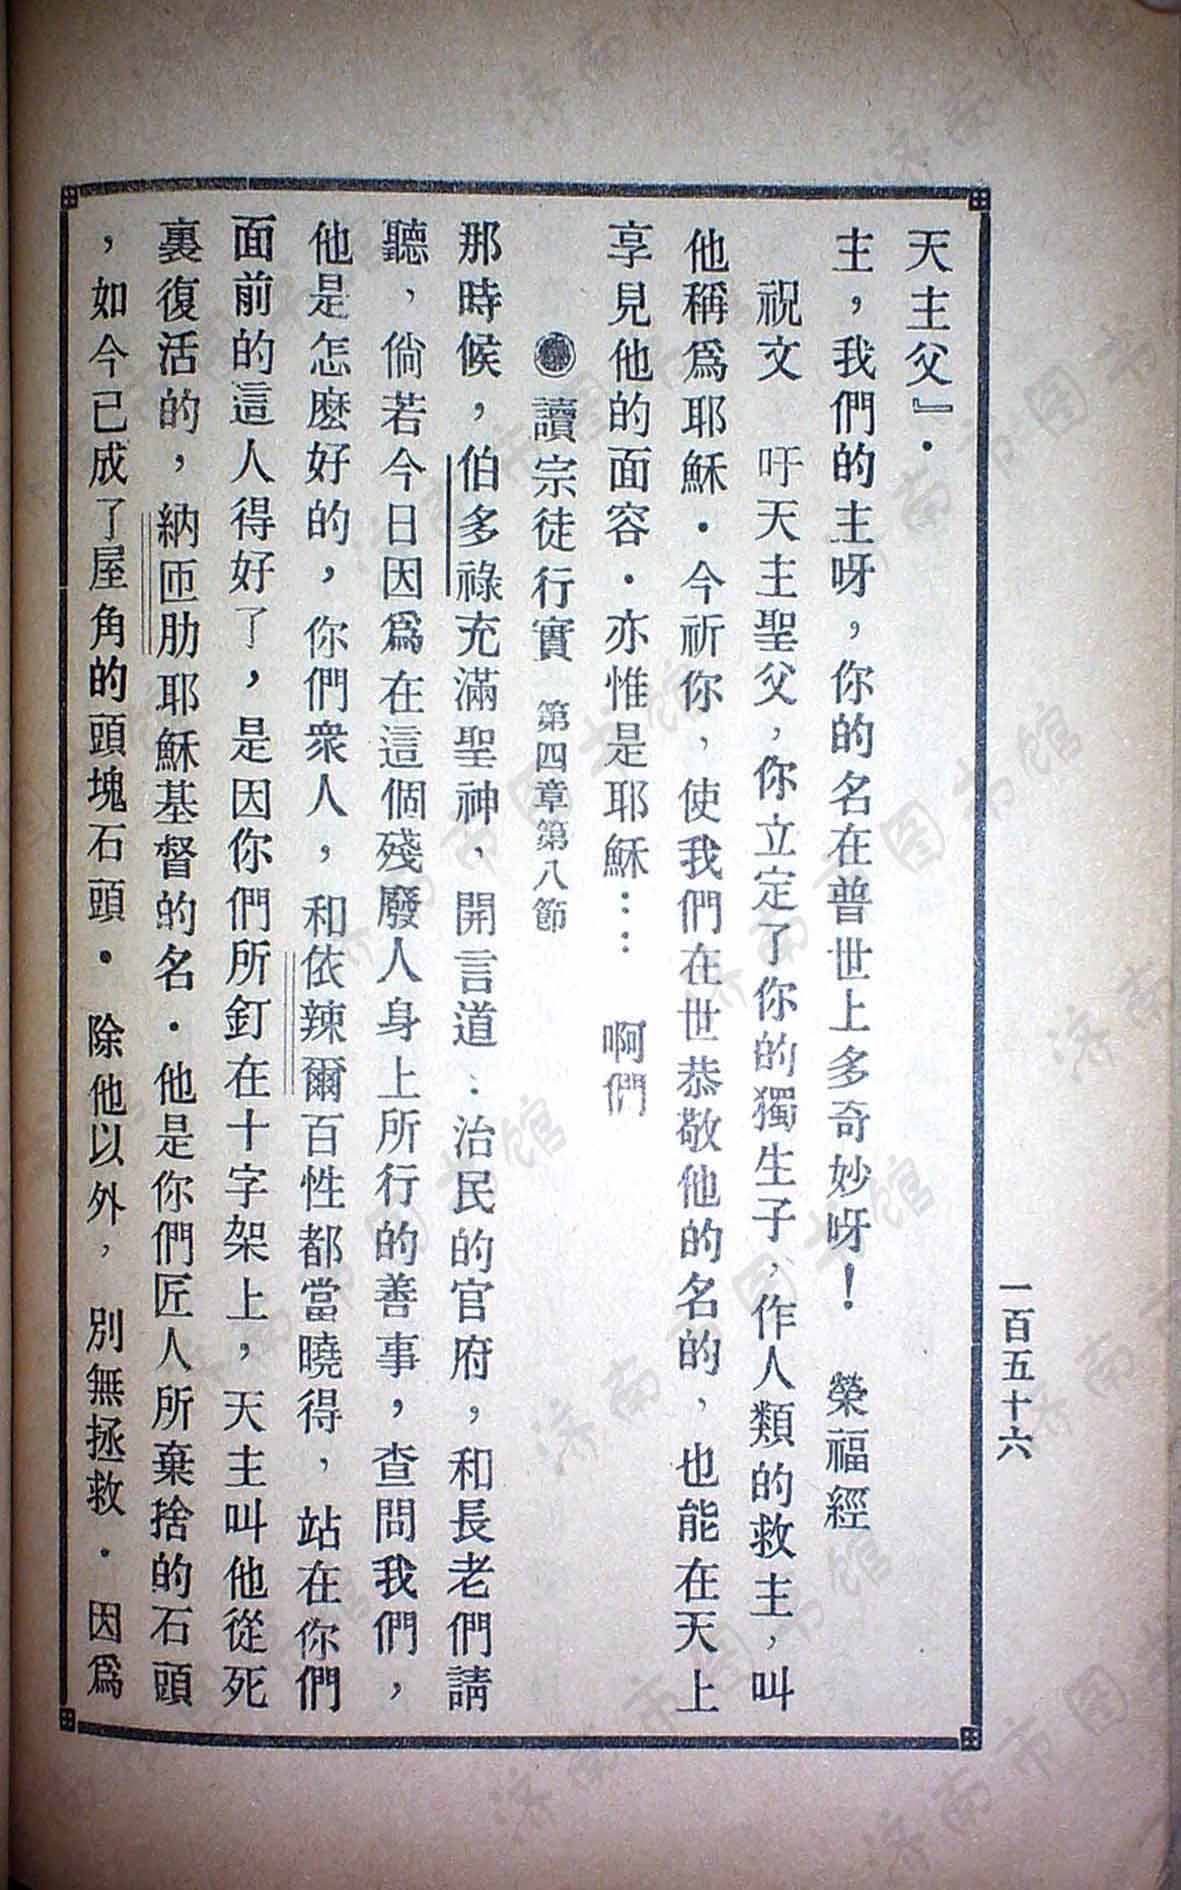 一百五十六
天主父』．
主，我們的主呀，你的名在普世上多奇妙呀！　榮福經
祝文　吁天主聖父，你立定了你的獨生子，作人類的救主，叫
他稱爲耶穌．今祈你，使我們在世恭敬他的名的，也能在天上
享見他的面容．亦惟是耶穌……　啊們
讀宗徒行實　第四章第八節
那時候，伯多祿充滿聖神，開言道：治民的官府，和長老們請
聽，倘若今日因爲在這個殘廢人身上所行的善事，查問我們，
他是怎麽好的，你們衆人，和依辣爾百性都當曉得，站在你們
面前的這人得好了，是因你們所釘在十字架上，天主叫他從死
裏復活的，納匝肋耶穌基督的名．他是你們匠人所棄捨的石頭
，如今已成了屋角的頭塊石頭．除他以外，別無拯救．因爲
济南市图书馆